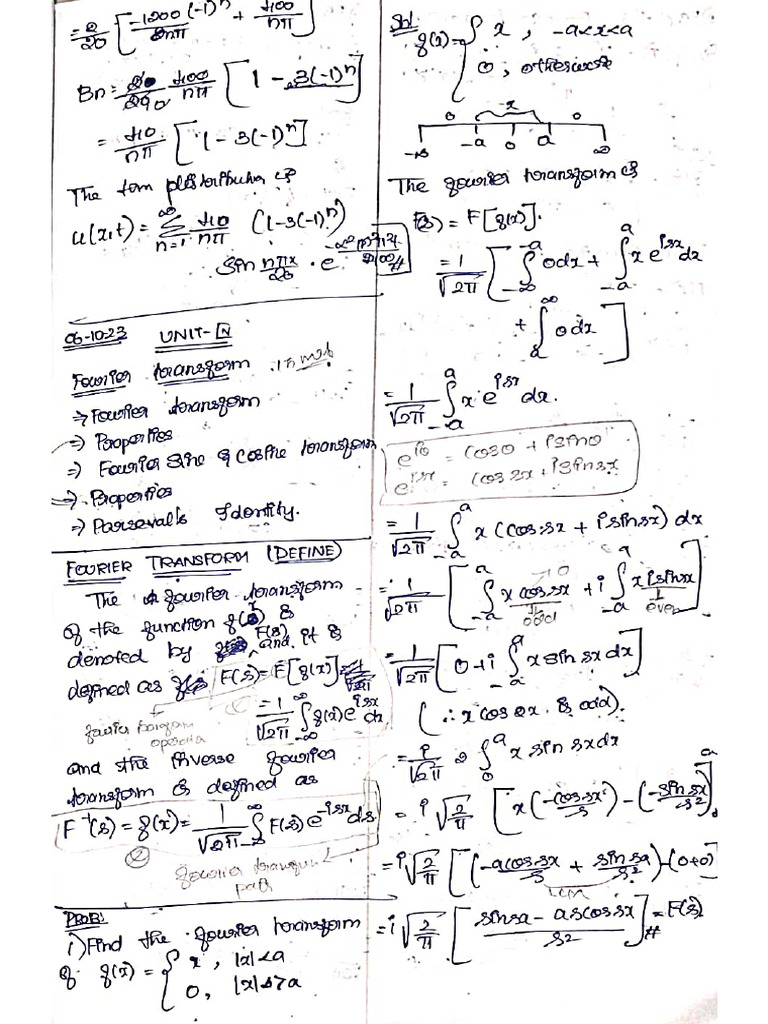 = 2/20 [ -1200(-1)^n / nπ + 400/nπ ]
Bn = 400/nπ [ 1 - 3(-1)^n ]
= 40/nπ [ 1 - 3(-1)^n ]
The
u(x,t) = ∑_{n=1}^{∞} 40/nπ (1-3(-1)^n)
Sin nπx/20 · e
06-10-23 UNIT-IV
Fourier transform
⇒ Fourier transform
⇒ Properties
⇒ Fourier Sine & Cosine transform
⇒ Properties
⇒ Parseval's Identity.
FOURIER TRANSFORM (DEFINE)
The fourier transform
of the function f(x) is
denoted by F(s) and it is
defined as F(s) = F[f(x)] =
= 1/√2π ∫_{-∞}^{∞} f(x) e^{isx} dx
and the inverse fourier
transform is defined as
F^{-1}(s) = f(x) = 1/√2π ∫_{-∞}^{∞} F(s) e^{-isx} ds.
②
PROB:
1) Find the fourier transform
of f(x) = { x, |x|<a
0, |x|>a
Sol
f(x) = { x, -a<x<a
0, otherwise
0 x 0
-∞ -a 0 a ∞
The fourier transform is
F(s) = F[f(x)].
= 1/√2π [ ∫_{-∞}^{-a} 0dx + ∫_{-a}^{a} x e^{isx} dx
+ ∫_{a}^{∞} 0dx ]
= 1/√2π ∫_{-a}^{a} x e^{isx} dx.
e^{iθ} = cosθ + isinθ
e^{isx} = cos sx + isin sx
= 1/√2π ∫_{-a}^{a} x (cos sx + i sin sx) dx
= 1/√2π [ ∫_{-a}^{a} x cos sx + i ∫_{-a}^{a} x i sin sx ]
odd even
= 1/√2π [ 0 + i ∫_{-a}^{a} x sin sx dx ]
(∴ x cos sx is odd).
= i/√2π 2 ∫_{0}^{a} x sin sx dx
= i √2/π [ x(-cos sx/s) - (-sin sx/s²) ]_0^a
= i √2/π [ (-a cos sx/s + sin sa/s²) - (0+0) ]
LCM
= i √2/π [ sin sa - as cos sx / s² ] = F(s) //